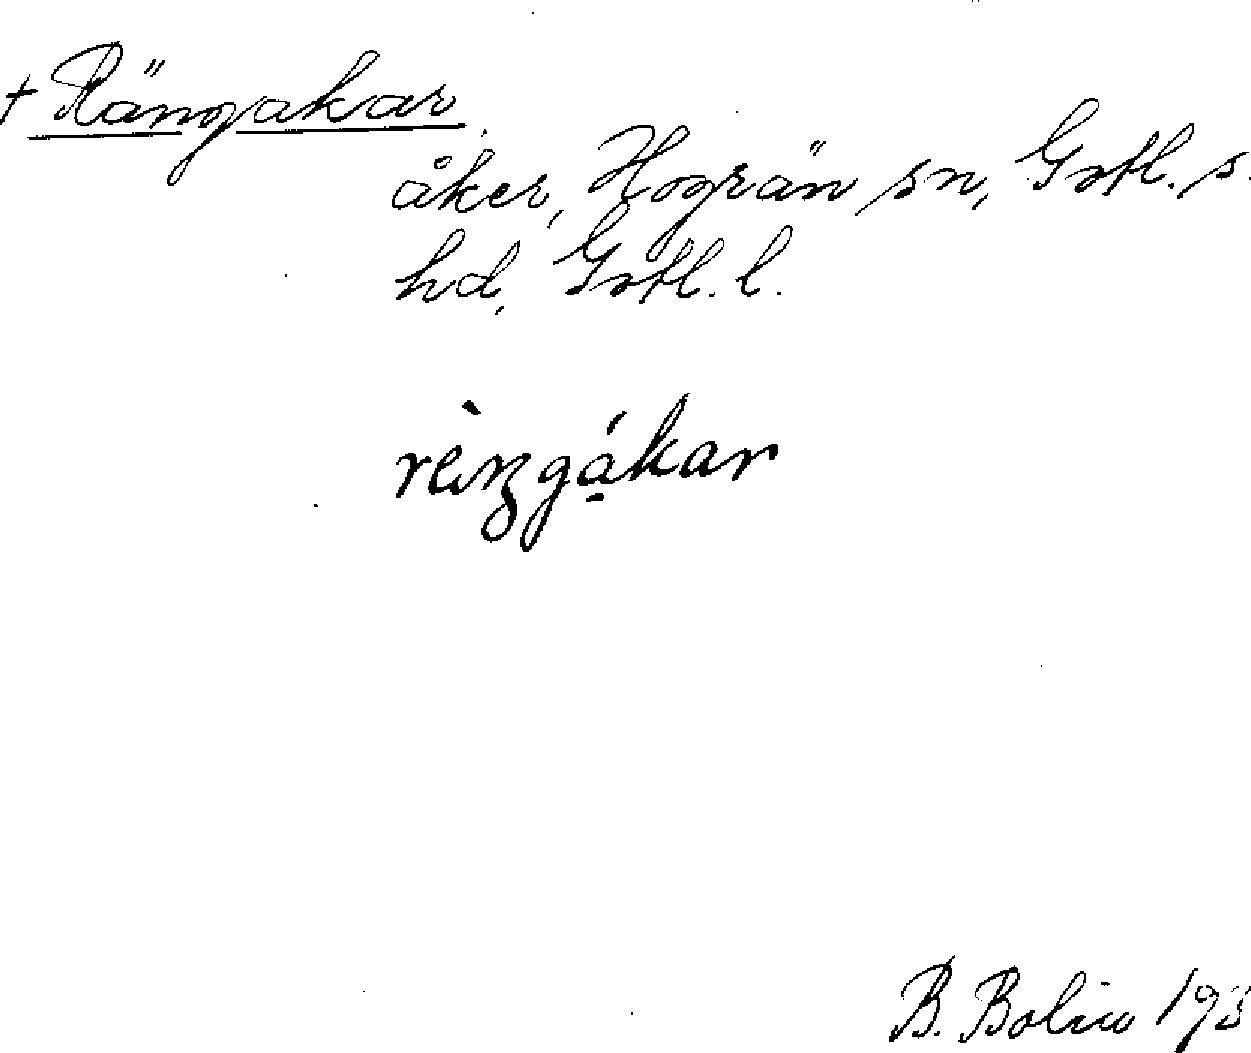 + Rängakar,
åker, Hogrän sn, Gotl. s.
hd, Gotl. l.
rèi̯ŋgá̠kar
B. Bolin 193